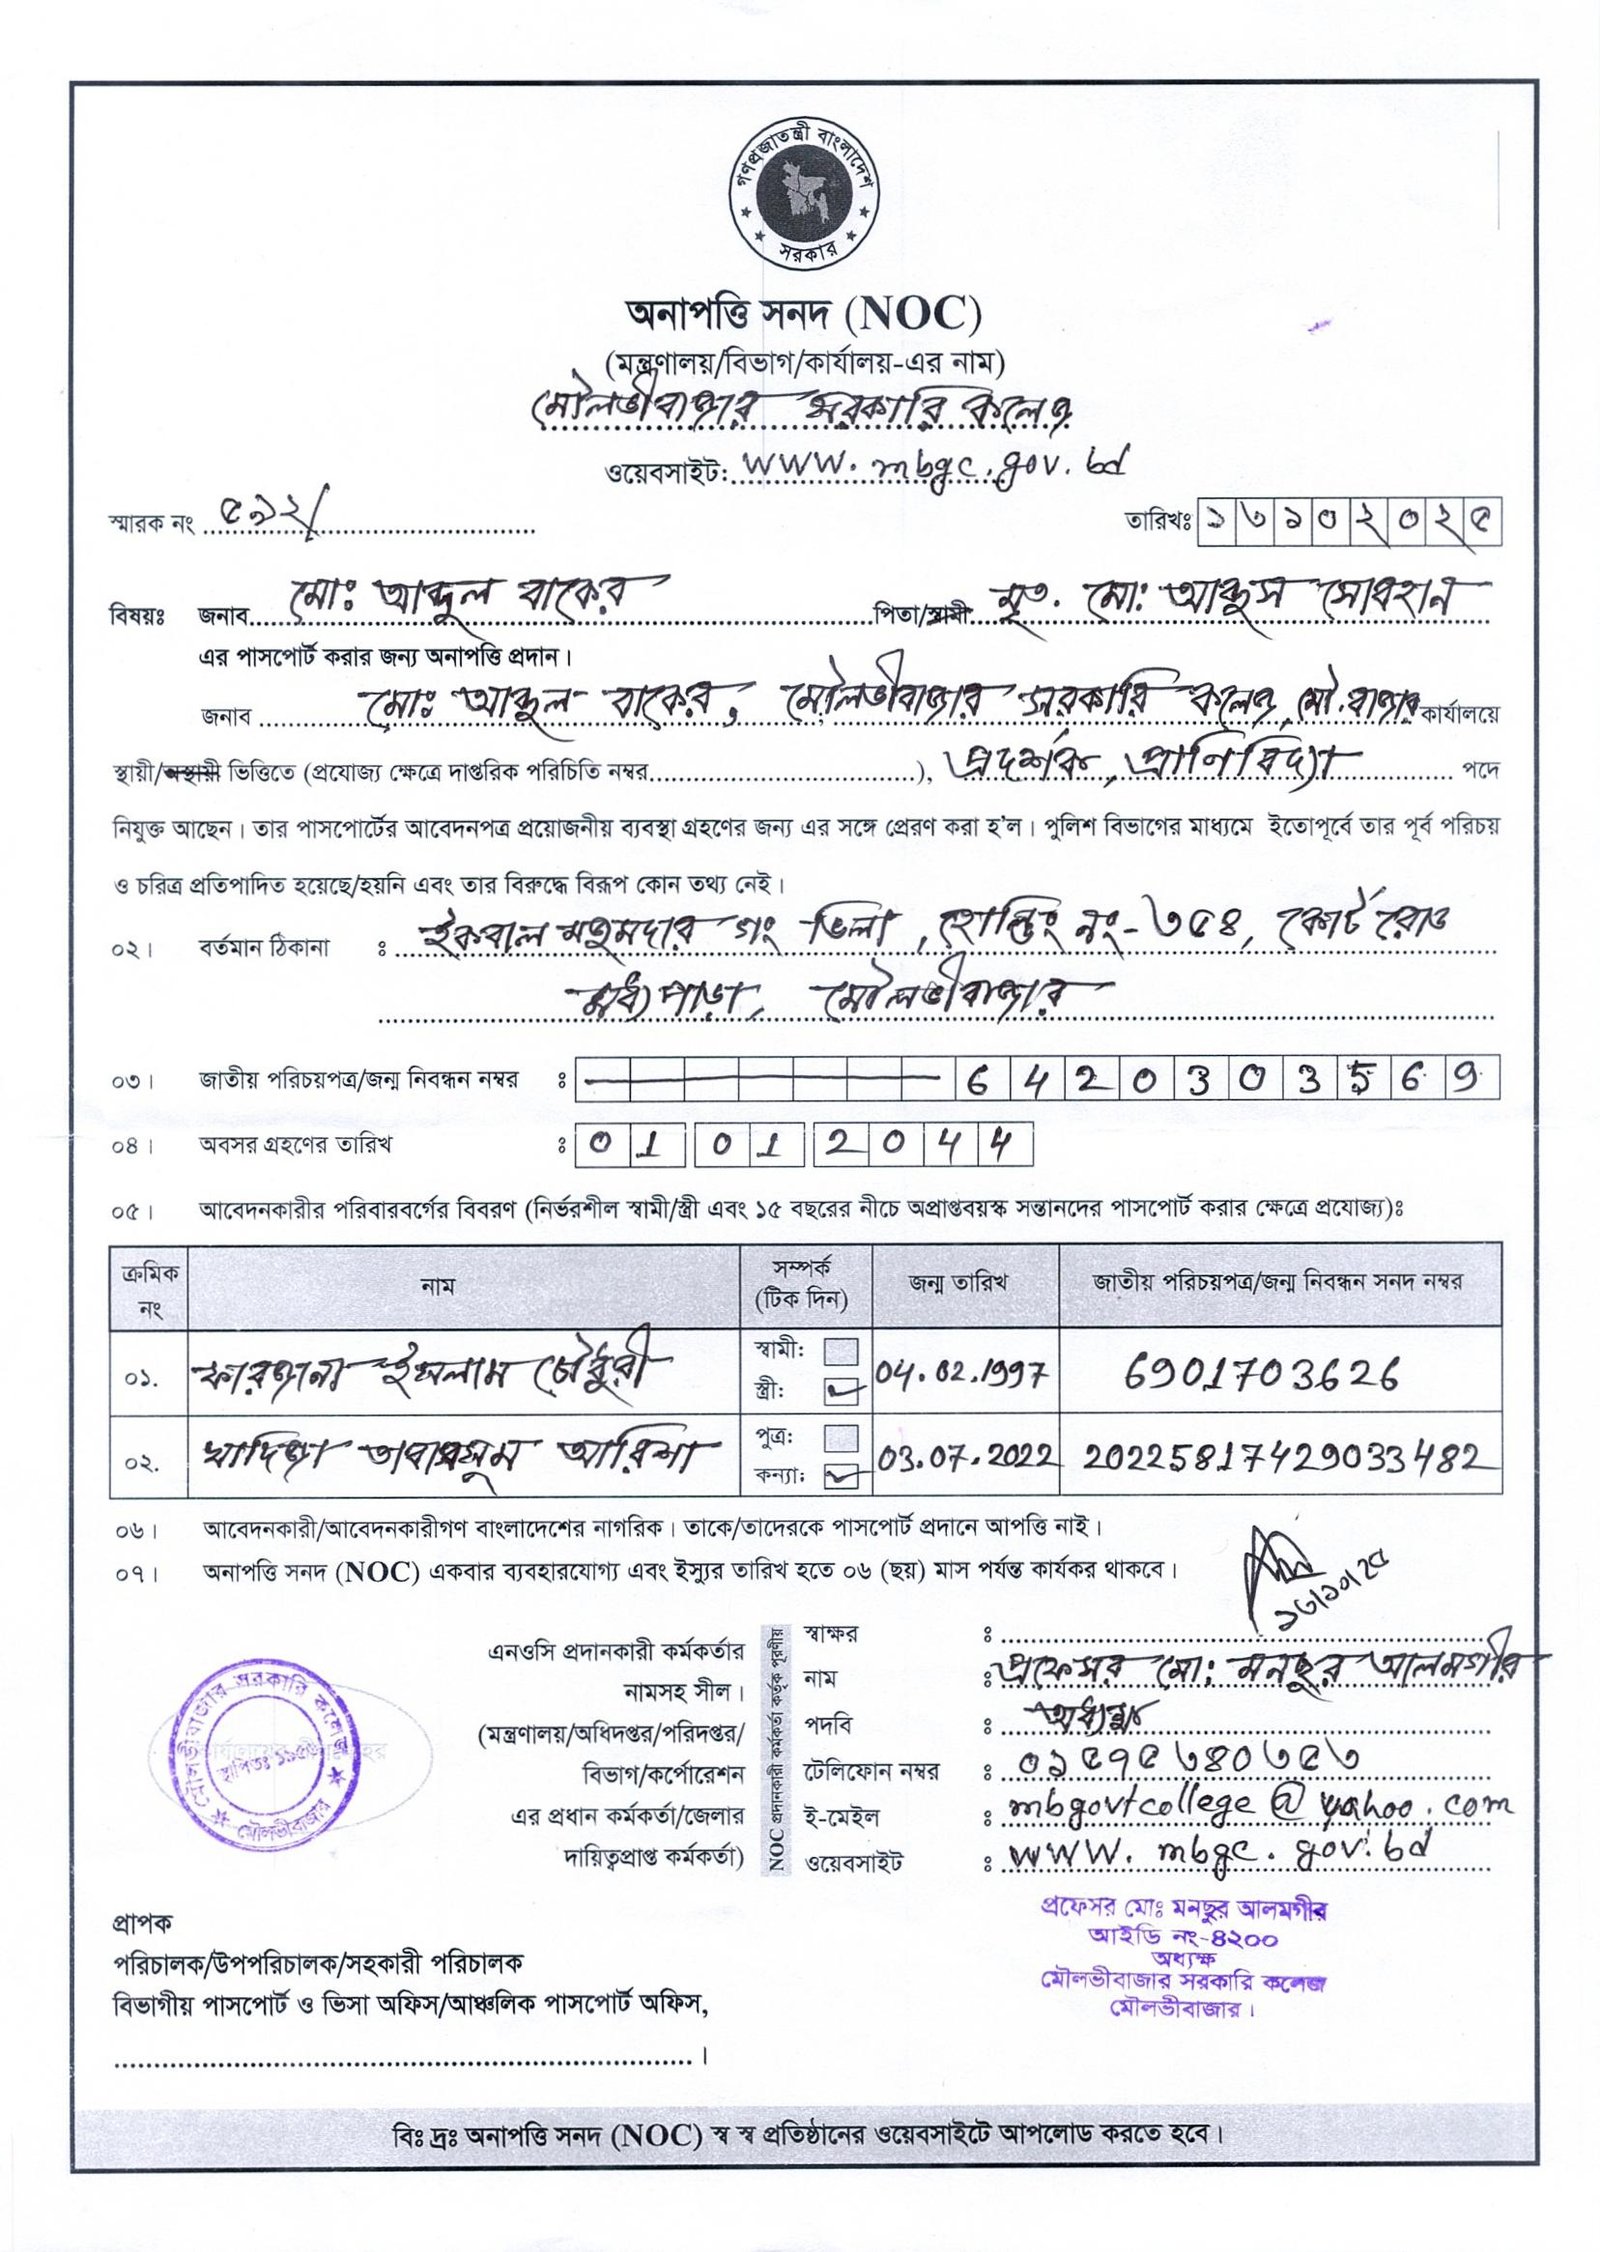 গণপ্রজাতন্ত্রী বাংলাদেশ
সরকার
অনাপত্তি সনদ (NOC)
(মন্ত্রণালয়/বিভাগ/কার্যালয়-এর নাম)
মৌলভীবাজার সরকারি কলেজ
ওয়েবসাইট: www.mbgc.gov.bd
স্মারক নং ৫৯২/
তারিখঃ ১৬১০২০২৫
বিষয়ঃ জনাব মোঃ আব্দুল বাকের পিতা/স্বামী মৃত. মো: আব্দুস সোবহান
এর পাসপোর্ট করার জন্য অনাপত্তি প্রদান।
জনাব মোঃ আব্দুল বাকের, মৌলভীবাজার সরকারি কলেজ, মৌ.বাজার কার্যালয়ে
স্থায়ী/অস্থায়ী ভিত্তিতে (প্রযোজ্য ক্ষেত্রে দাপ্তরিক পরিচিতি নম্বর..............................), প্রদর্শক, প্রাণিবিদ্যা পদে
নিযুক্ত আছেন। তার পাসপোর্টের আবেদনপত্র প্রয়োজনীয় ব্যবস্থা গ্রহণের জন্য এর সঙ্গে প্রেরণ করা হ'ল। পুলিশ বিভাগের মাধ্যমে ইতোপূর্বে তার পূর্ব পরিচয়
ও চরিত্র প্রতিপাদিত হয়েছে/হয়নি এবং তার বিরুদ্ধে বিরূপ কোন তথ্য নেই।
০২। বর্তমান ঠিকানা ঃ ইকবাল মজুমদার গং ভিলা, হোল্ডিং নং-৩৫৪, কোর্ট রোড
মধ্যপাড়া, মৌলভীবাজার
০৩। জাতীয় পরিচয়পত্র/জন্ম নিবন্ধন নম্বর ঃ 6420303569
০৪। অবসর গ্রহণের তারিখ ঃ 01 01 2044
০৫। আবেদনকারীর পরিবারবর্গের বিবরণ (নির্ভরশীল স্বামী/স্ত্রী এবং ১৫ বছরের নীচে অপ্রাপ্তবয়স্ক সন্তানদের পাসপোর্ট করার ক্ষেত্রে প্রযোজ্য)ঃ
ক্রমিক নং নাম সম্পর্ক (টিক দিন) জন্ম তারিখ জাতীয় পরিচয়পত্র/জন্ম নিবন্ধন সনদ নম্বর
০১. ফারজানা ইসলাম চৌধুরী স্বামী: স্ত্রী: ✓ 04.02.1997 6901703626
০২. খাদিজা তাবাসসুম আরিশা পুত্র: কন্যা: ✓ 03.07.2022 20225817429033482
০৬। আবেদনকারী/আবেদনকারীগণ বাংলাদেশের নাগরিক। তাকে/তাদেরকে পাসপোর্ট প্রদানে আপত্তি নাই।
০৭। অনাপত্তি সনদ (NOC) একবার ব্যবহারযোগ্য এবং ইস্যুর তারিখ হতে ০৬ (ছয়) মাস পর্যন্ত কার্যকর থাকবে।
১৬/১০/২৫
এনওসি প্রদানকারী কর্মকর্তার
নামসহ সীল।
(মন্ত্রণালয়/অধিদপ্তর/পরিদপ্তর/
বিভাগ/কর্পোরেশন
এর প্রধান কর্মকর্তা/জেলার
দায়িত্বপ্রাপ্ত কর্মকর্তা)
NOC প্রদানকারী কর্মকর্তা কর্তৃক পূরণীয়
স্বাক্ষর ঃ
নাম ঃ প্রফেসর মো: মনছুর আলমগীর
পদবি ঃ অধ্যক্ষ
টেলিফোন নম্বর ঃ ০১৫৭৫৬৪০৩৫৩
ই-মেইল ঃ mbgovtcollege@yahoo.com
ওয়েবসাইট ঃ www.mbgc.gov.bd
মৌলভীবাজার সরকারি কলেজ
স্থাপিতঃ ১৯৫৬
মৌলভীবাজার
প্রফেসর মোঃ মনছুর আলমগীর
আইডি নং-৪২০০
অধ্যক্ষ
মৌলভীবাজার সরকারি কলেজ
মৌলভীবাজার।
প্রাপক
পরিচালক/উপপরিচালক/সহকারী পরিচালক
বিভাগীয় পাসপোর্ট ও ভিসা অফিস/আঞ্চলিক পাসপোর্ট অফিস,
বিঃ দ্রঃ অনাপত্তি সনদ (NOC) স্ব স্ব প্রতিষ্ঠানের ওয়েবসাইটে আপলোড করতে হবে।